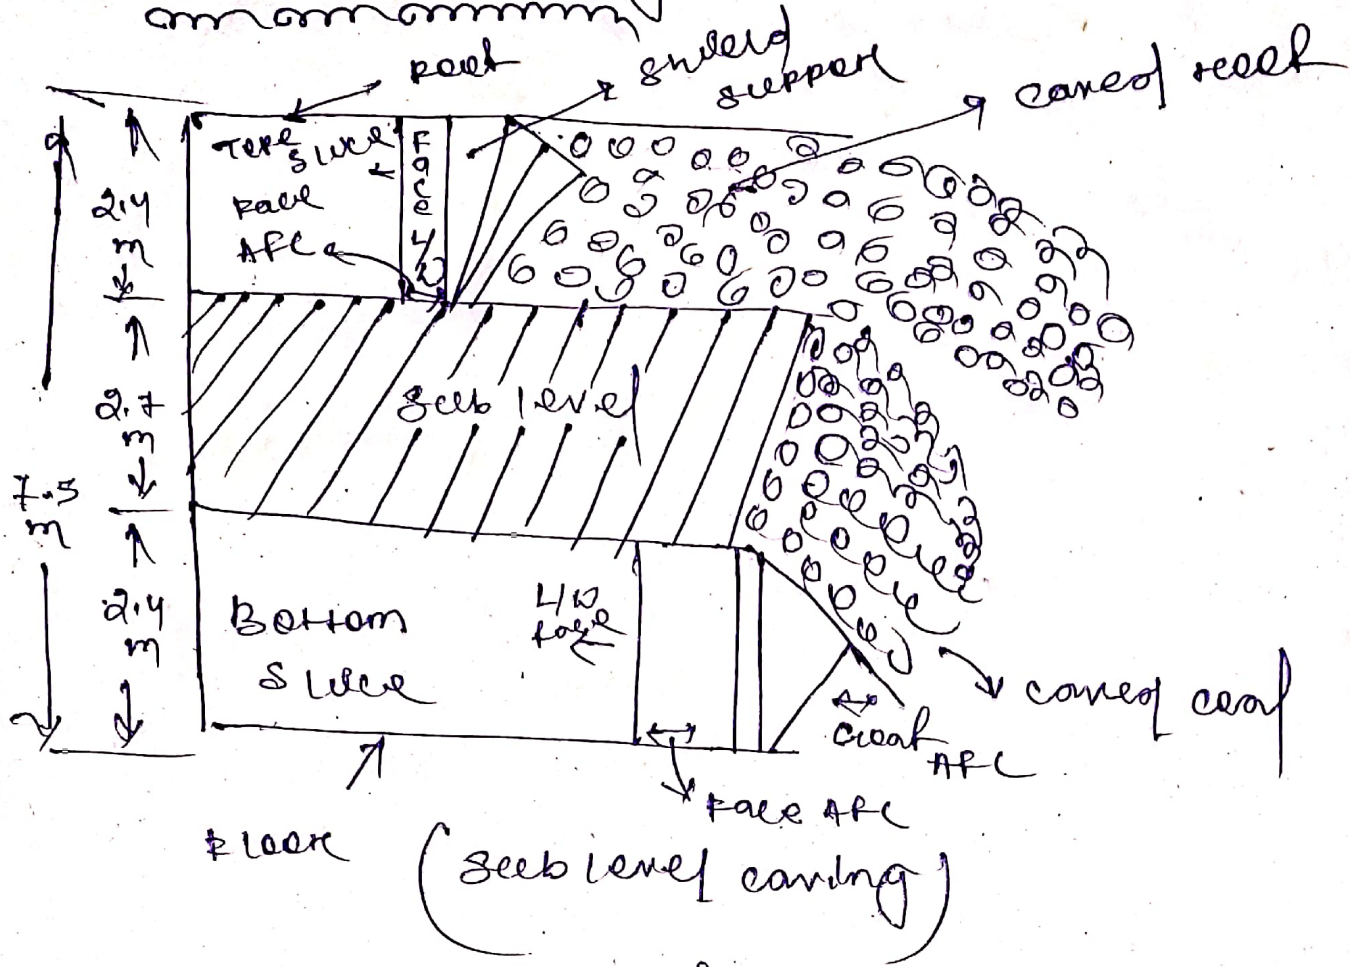 Roof
Shield
support
caved roof
Top
slice
Face
AFC
Face
L/W
2.4
m
2.7
m
Sub level
7.5
m
2.4
m
Bottom
slice
L/W
face
caved coal
Goaf
AFC
Face AFC
Floor
(Sub level caving)